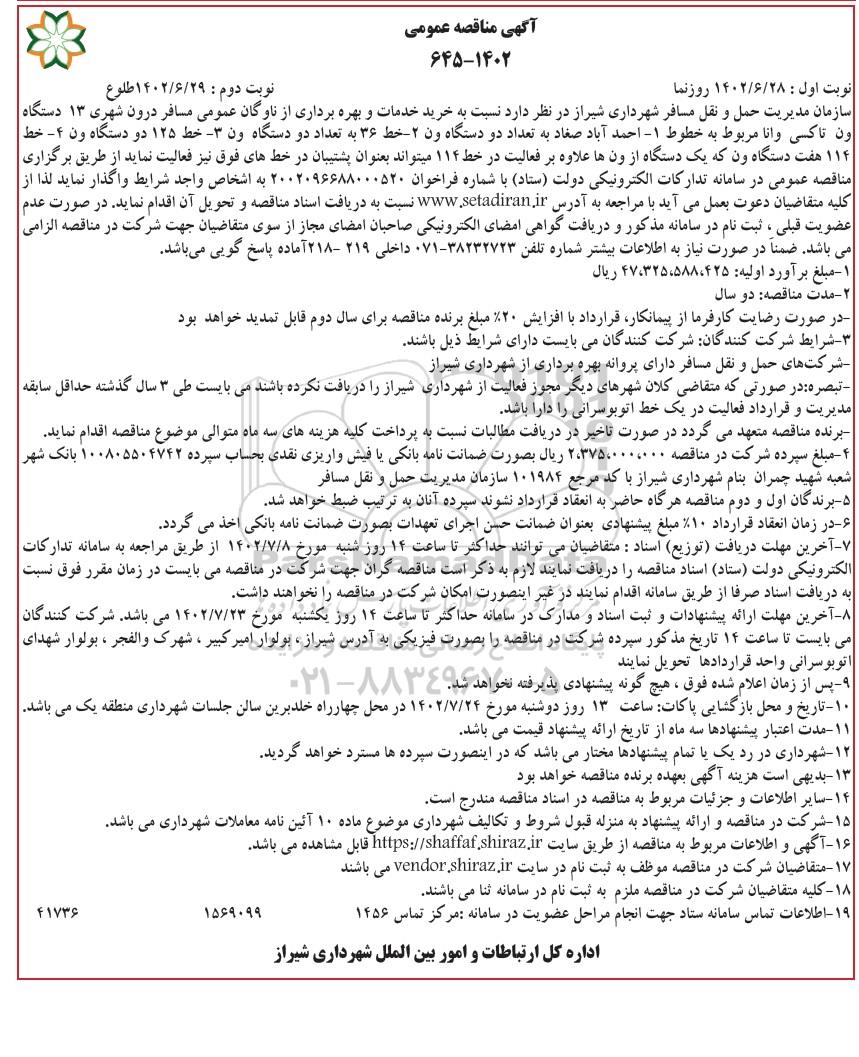 آگهی مناقصه عمومی
۱۴۰۲-۶۴۵
نوبت اول : ۱۴۰۲/۶/۲۸ روزنما نوبت دوم : ۱۴۰۲/۶/۲۹طلوع
سازمان مدیریت حمل و نقل مسافر شهرداری شیراز در نظر دارد نسبت به خرید خدمات و بهره برداری از ناوگان عمومی مسافر درون شهری ۱۳ دستگاه
ون تاکسی وانا مربوط به خطوط ۱- احمد آباد صغاد به تعداد دو دستگاه ون ۲-خط ۳۶ به تعداد دو دستگاه ون ۳- خط ۱۲۵ دو دستگاه ون ۴- خط
۱۱۴ هفت دستگاه ون که یک دستگاه از ون ها علاوه بر فعالیت در خط۱۱۴ میتواند بعنوان پشتیبان در خط های فوق نیز فعالیت نماید از طریق برگزاری
مناقصه عمومی در سامانه تدارکات الکترونیکی دولت (ستاد) با شماره فراخوان ۲۰۰۲۰۹۶۶۸۸۰۰۰۵۲۰ به اشخاص واجد شرایط واگذار نماید لذا از
کلیه متقاضیان دعوت بعمل می آید با مراجعه به آدرس www.setadiran.ir نسبت به دریافت اسناد مناقصه و تحویل آن اقدام نماید. در صورت عدم
عضویت قبلی ، ثبت نام در سامانه مذکور و دریافت گواهی امضای الکترونیکی صاحبان امضای مجاز از سوی متقاضیان جهت شرکت در مناقصه الزامی
می باشد. ضمناً در صورت نیاز به اطلاعات بیشتر شماره تلفن ۳۸۲۳۲۷۲۳-۰۷۱ داخلی ۲۱۹ -۲۱۸آماده پاسخ گویی می‌باشد.
۱-مبلغ برآورد اولیه: ۴۷،۳۲۵،۵۸۸،۴۲۵ ریال
۲-مدت مناقصه: دو سال
-در صورت رضایت کارفرما از پیمانکار، قرارداد با افزایش ۲۰٪ مبلغ برنده مناقصه برای سال دوم قابل تمدید خواهد بود
۳-شرایط شرکت کنندگان: شرکت کنندگان می بایست دارای شرایط ذیل باشند.
-شرکت‌های حمل و نقل مسافر دارای پروانه بهره برداری از شهرداری شیراز
-تبصره:در صورتی که متقاضی کلان شهرهای دیگر مجوز فعالیت از شهرداری شیراز را دریافت نکرده باشند می بایست طی ۳ سال گذشته حداقل سابقه
مدیریت و قرارداد فعالیت در یک خط اتوبوسرانی را دارا باشد.
-برنده مناقصه متعهد می گردد در صورت تاخیر در دریافت مطالبات نسبت به پرداخت کلیه هزینه های سه ماه متوالی موضوع مناقصه اقدام نماید.
۴-مبلغ سپرده شرکت در مناقصه ۲،۳۷۵،۰۰۰،۰۰۰ ریال بصورت ضمانت نامه بانکی یا فیش واریزی نقدی بحساب سپرده ۱۰۰۸۰۵۵۰۴۷۴۲ بانک شهر
شعبه شهید چمران بنام شهرداری شیراز با کد مرجع ۱۰۱۹۸۴ سازمان مدیریت حمل و نقل مسافر
۵-برندگان اول و دوم مناقصه هرگاه حاضر به انعقاد قرارداد نشوند سپرده آنان به ترتیب ضبط خواهد شد.
۶-در زمان انعقاد قرارداد ۱۰٪ مبلغ پیشنهادی بعنوان ضمانت حسن اجرای تعهدات بصورت ضمانت نامه بانکی اخذ می گردد.
۷-آخرین مهلت دریافت (توزیع) اسناد : متقاضیان می توانند حداکثر تا ساعت ۱۴ روز شنبه مورخ ۱۴۰۲/۷/۸ از طریق مراجعه به سامانه تدارکات
الکترونیکی دولت (ستاد) اسناد مناقصه را دریافت نمایند لازم به ذکر است مناقصه گران جهت شرکت در مناقصه می بایست در زمان مقرر فوق نسبت
به دریافت اسناد صرفا از طریق سامانه اقدام نمایند در غیر اینصورت امکان شرکت در مناقصه را نخواهند داشت.
۸-آخرین مهلت ارائه پیشنهادات و ثبت اسناد و مدارک در سامانه حداکثر تا ساعت ۱۴ روز یکشنبه مورخ ۱۴۰۲/۷/۲۳ می باشد. شرکت کنندگان
می بایست تا ساعت ۱۴ تاریخ مذکور سپرده شرکت در مناقصه را بصورت فیزیکی به آدرس شیراز ، بولوار امیرکبیر ، شهرک والفجر ، بولوار شهدای
اتوبوسرانی واحد قراردادها تحویل نمایند
۹-پس از زمان اعلام شده فوق ، هیچ گونه پیشنهادی پذیرفته نخواهد شد.
۱۰-تاریخ و محل بازگشایی پاکات: ساعت ۱۳ روز دوشنبه مورخ ۱۴۰۲/۷/۲۴ در محل چهارراه خلدبرین سالن جلسات شهرداری منطقه یک می باشد.
۱۱-مدت اعتبار پیشنهادها سه ماه از تاریخ ارائه پیشنهاد قیمت می باشد.
۱۲-شهرداری در رد یک یا تمام پیشنهادها مختار می باشد که در اینصورت سپرده ها مسترد خواهد گردید.
۱۳-بدیهی است هزینه آگهی بعهده برنده مناقصه خواهد بود
۱۴-سایر اطلاعات و جزئیات مربوط به مناقصه در اسناد مناقصه مندرج است.
۱۵-شرکت در مناقصه و ارائه پیشنهاد به منزله قبول شروط و تکالیف شهرداری موضوع ماده ۱۰ آئین نامه معاملات شهرداری می باشد.
۱۶-آگهی و اطلاعات مربوط به مناقصه از طریق سایت https://shaffaf.shiraz.ir قابل مشاهده می باشد.
۱۷-متقاضیان شرکت در مناقصه موظف به ثبت نام در سایت vendor.shiraz.ir می باشند
۱۸-کلیه متقاضیان شرکت در مناقصه ملزم به ثبت نام در سامانه ثنا می باشند.
۱۹-اطلاعات تماس سامانه ستاد جهت انجام مراحل عضویت در سامانه :مرکز تماس ۱۴۵۶ ۱۵۶۹۰۹۹ ۴۱۷۳۶
اداره کل ارتباطات و امور بین الملل شهرداری شیراز
۰۲۱-۸۸۳۴۹۶۷۰-۵